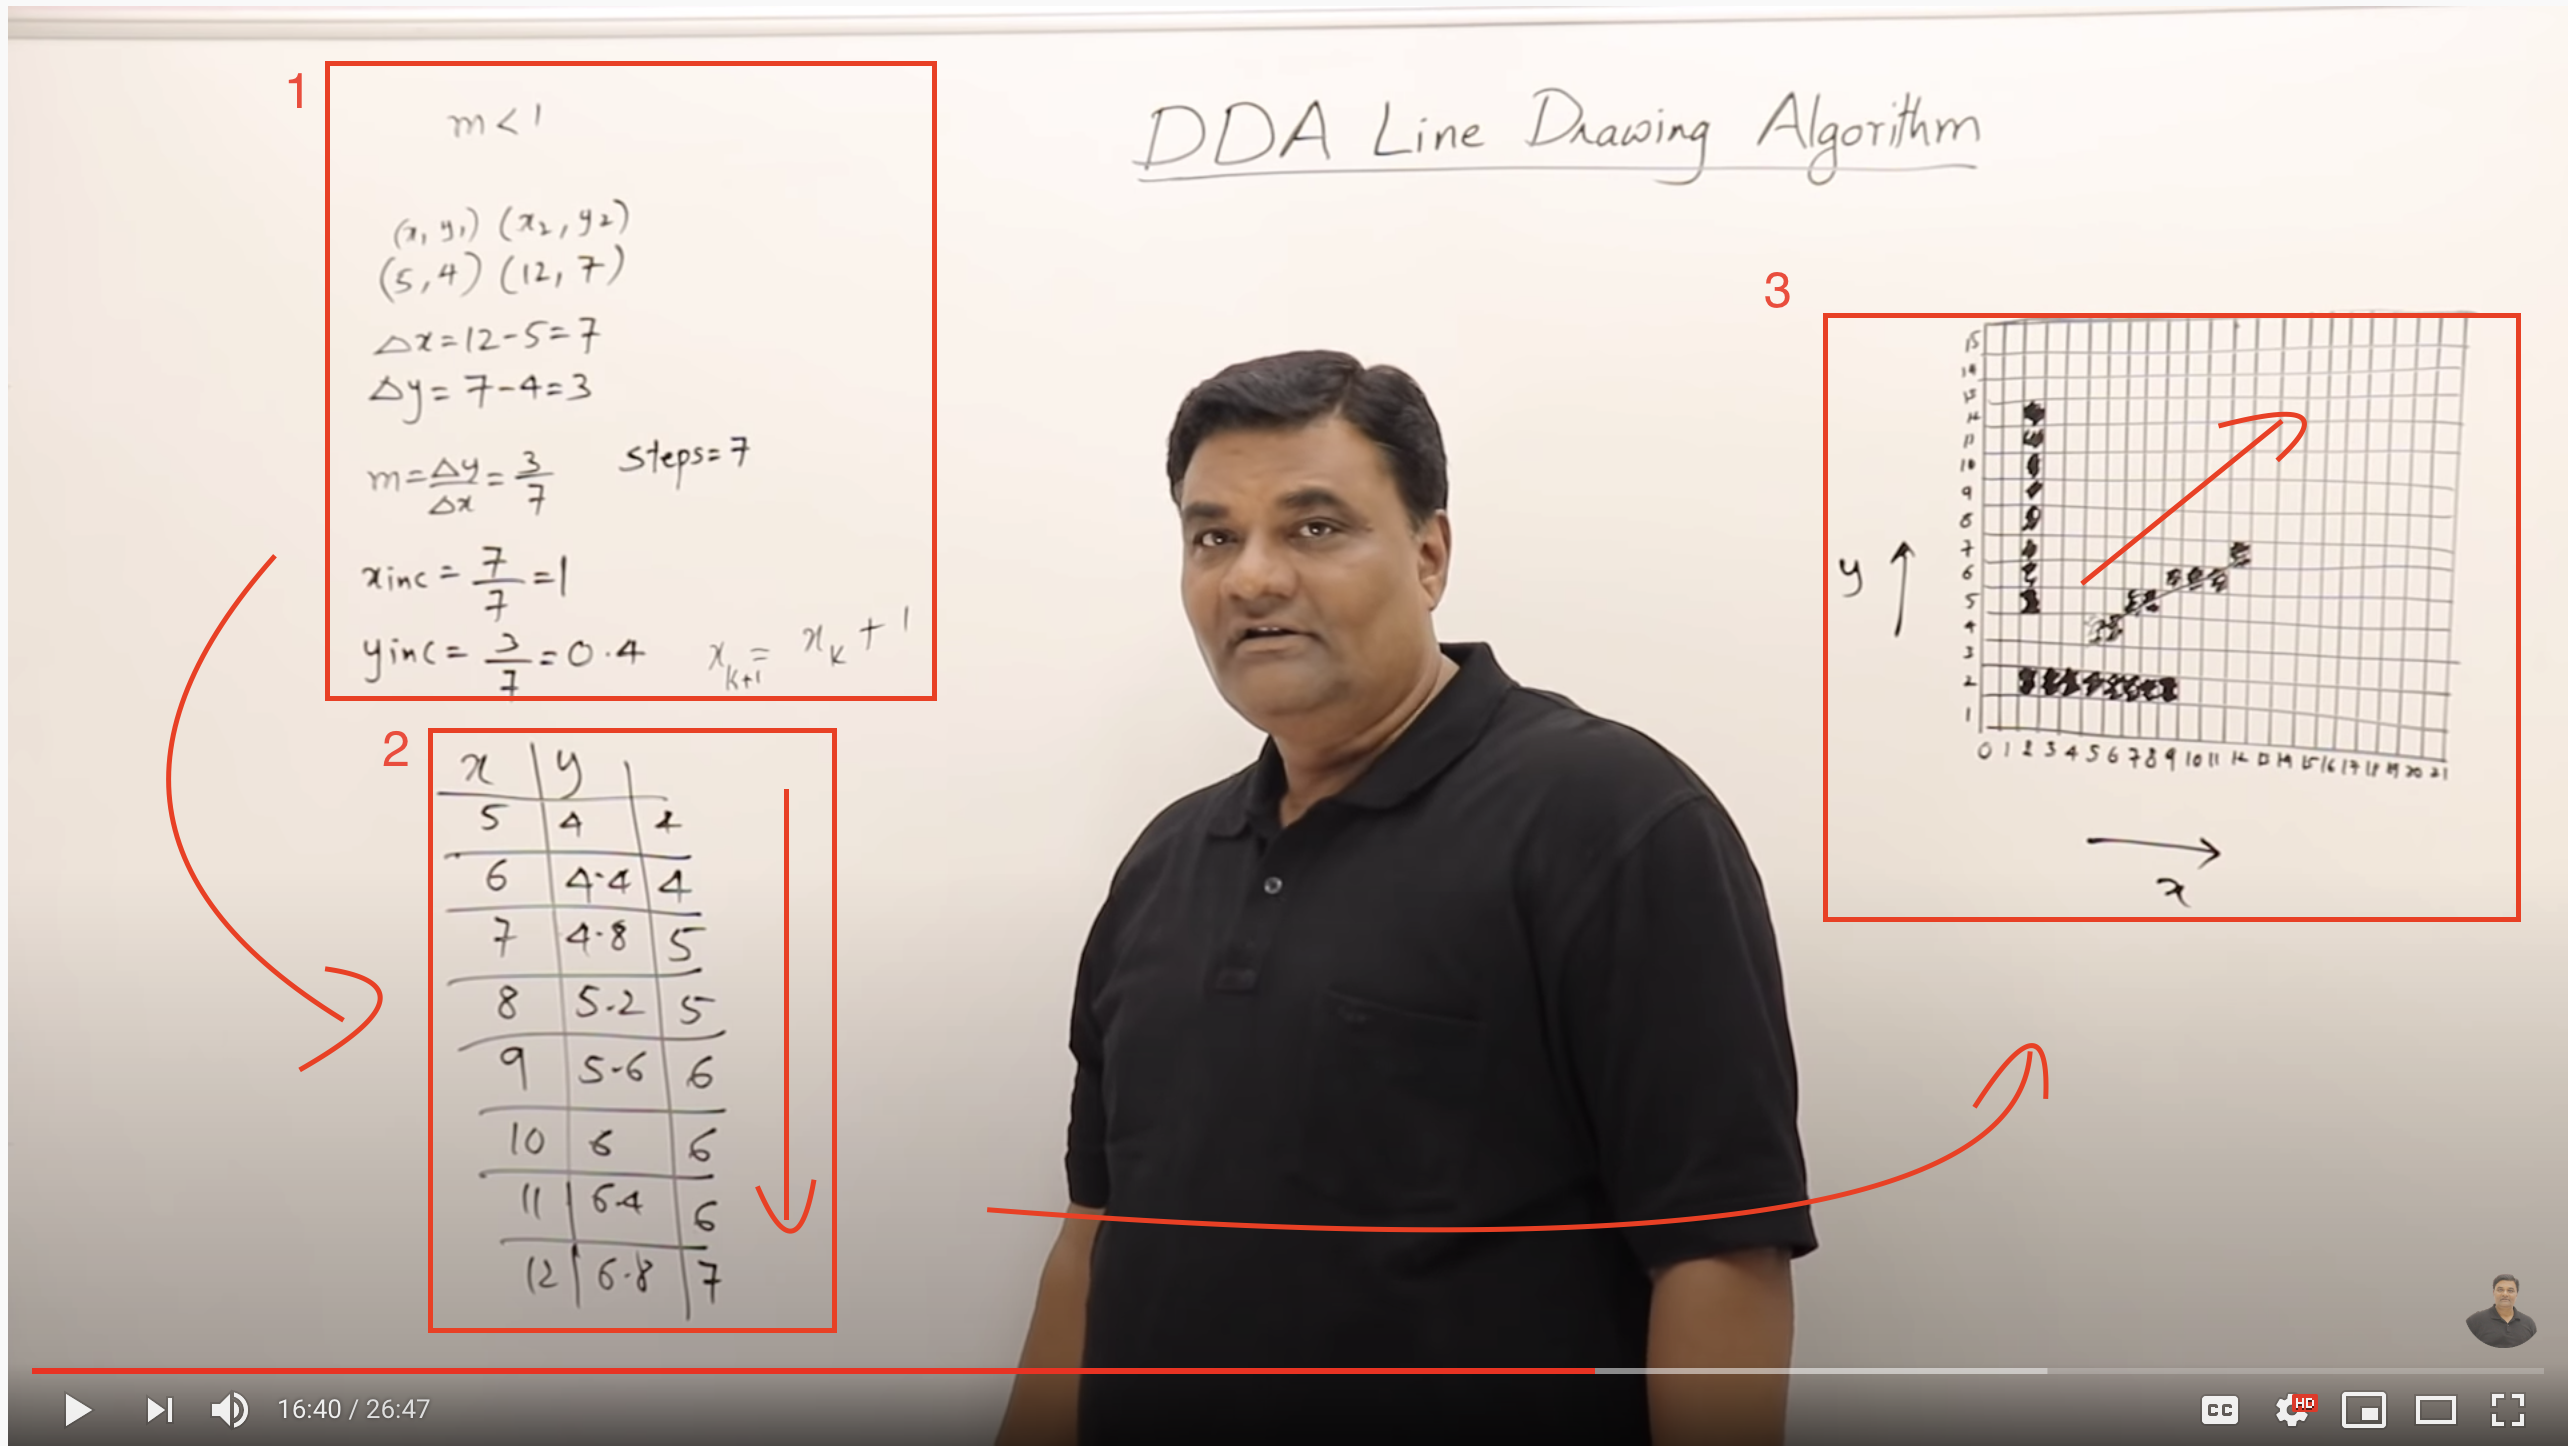 DDA Line Drawing Algorithm
1
m < 1
(x₁ y₁) (x₂, y₂)
(5,4) (12, 7)
Δx = 12 - 5 = 7
Δy = 7 - 4 = 3
m = Δy/Δx = 3/7 steps = 7
xinc = 7/7 = 1
yinc = 3/7 = 0.4 xₖ₊₁ = xₖ + 1
2
x y
5 4 4
6 4.4 4
7 4.8 5
8 5.2 5
9 5.6 6
10 6 6
11 6.4 6
12 6.8 7
3
15
14
13
12
11
10
9
8
7
6
5
4
3
2
1
0 1 2 3 4 5 6 7 8 9 10 11 12 13 14 15 16 17 18 19 20 21
y
x
16:40 / 26:47
CC
HD